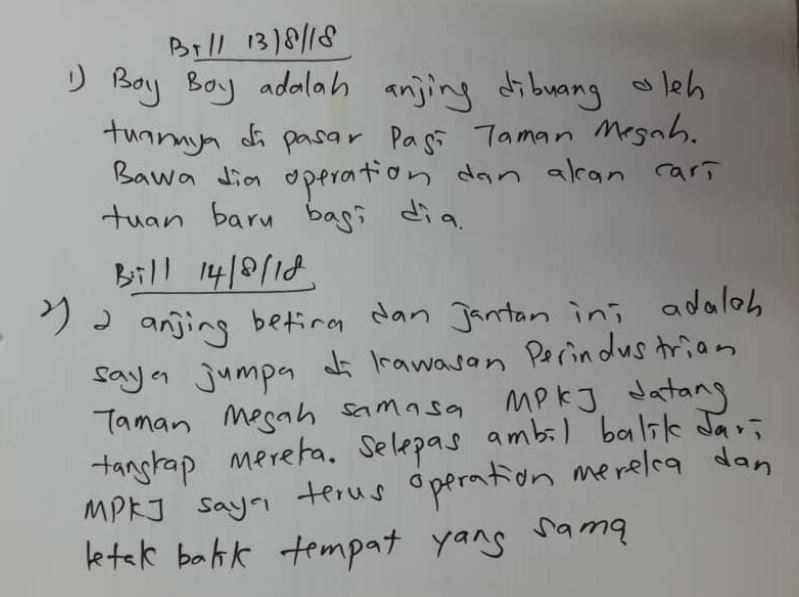 Bill 13/8/18
1) Boy Boy adalah anjing dibuang oleh
tuannya di pasar Pagi Taman Megah.
Bawa dia operation dan akan cari
tuan baru bagi dia.
Bill 14/8/18
2) 2 anjing betina dan jantan ini adalah
saya jumpa di kawasan Perindustrian
Taman Megah samasa MPKJ datang
tangkap mereka. Selepas ambil balik dari
MPKJ saya terus operation mereka dan
letak balik tempat yang sama